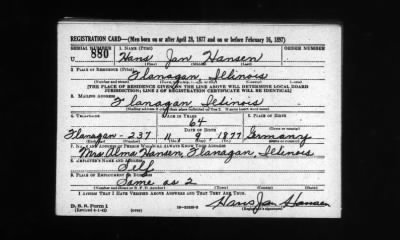 REGISTRATION CARD—(Men born on or after April 28, 1877 and on or before February 16, 1897)
SERIAL NUMBER 1. NAME (Print) ORDER NUMBER
U 880 Hans Jan Hansen
(First) (Middle) (Last)
2. PLACE OF RESIDENCE (Print)
Flanagan Illinois
(Number and street) (Town, township, village, or city) (County) (State)
[THE PLACE OF RESIDENCE GIVEN ON THE LINE ABOVE WILL DETERMINE LOCAL BOARD
JURISDICTION; LINE 2 OF REGISTRATION CERTIFICATE WILL BE IDENTICAL]
3. MAILING ADDRESS
Flanagan Illinois
4. TELEPHONE 5. AGE IN YEARS 6. PLACE OF BIRTH
64
DATE OF BIRTH
Flanagan - 237 11 9 1877 Germany
7. NAME AND ADDRESS OF PERSON WHO WILL ALWAYS KNOW YOUR ADDRESS
Mrs Alma Hansen, Flanagan, Illinois
8. EMPLOYER'S NAME AND ADDRESS
Self
9. PLACE OF EMPLOYMENT OR BUSINESS
Same as 2
I AFFIRM THAT I HAVE VERIFIED ABOVE ANSWERS AND THAT THEY ARE TRUE.
D. S. S. Form 1
Hans Jan Hansen
(Registrant's signature)